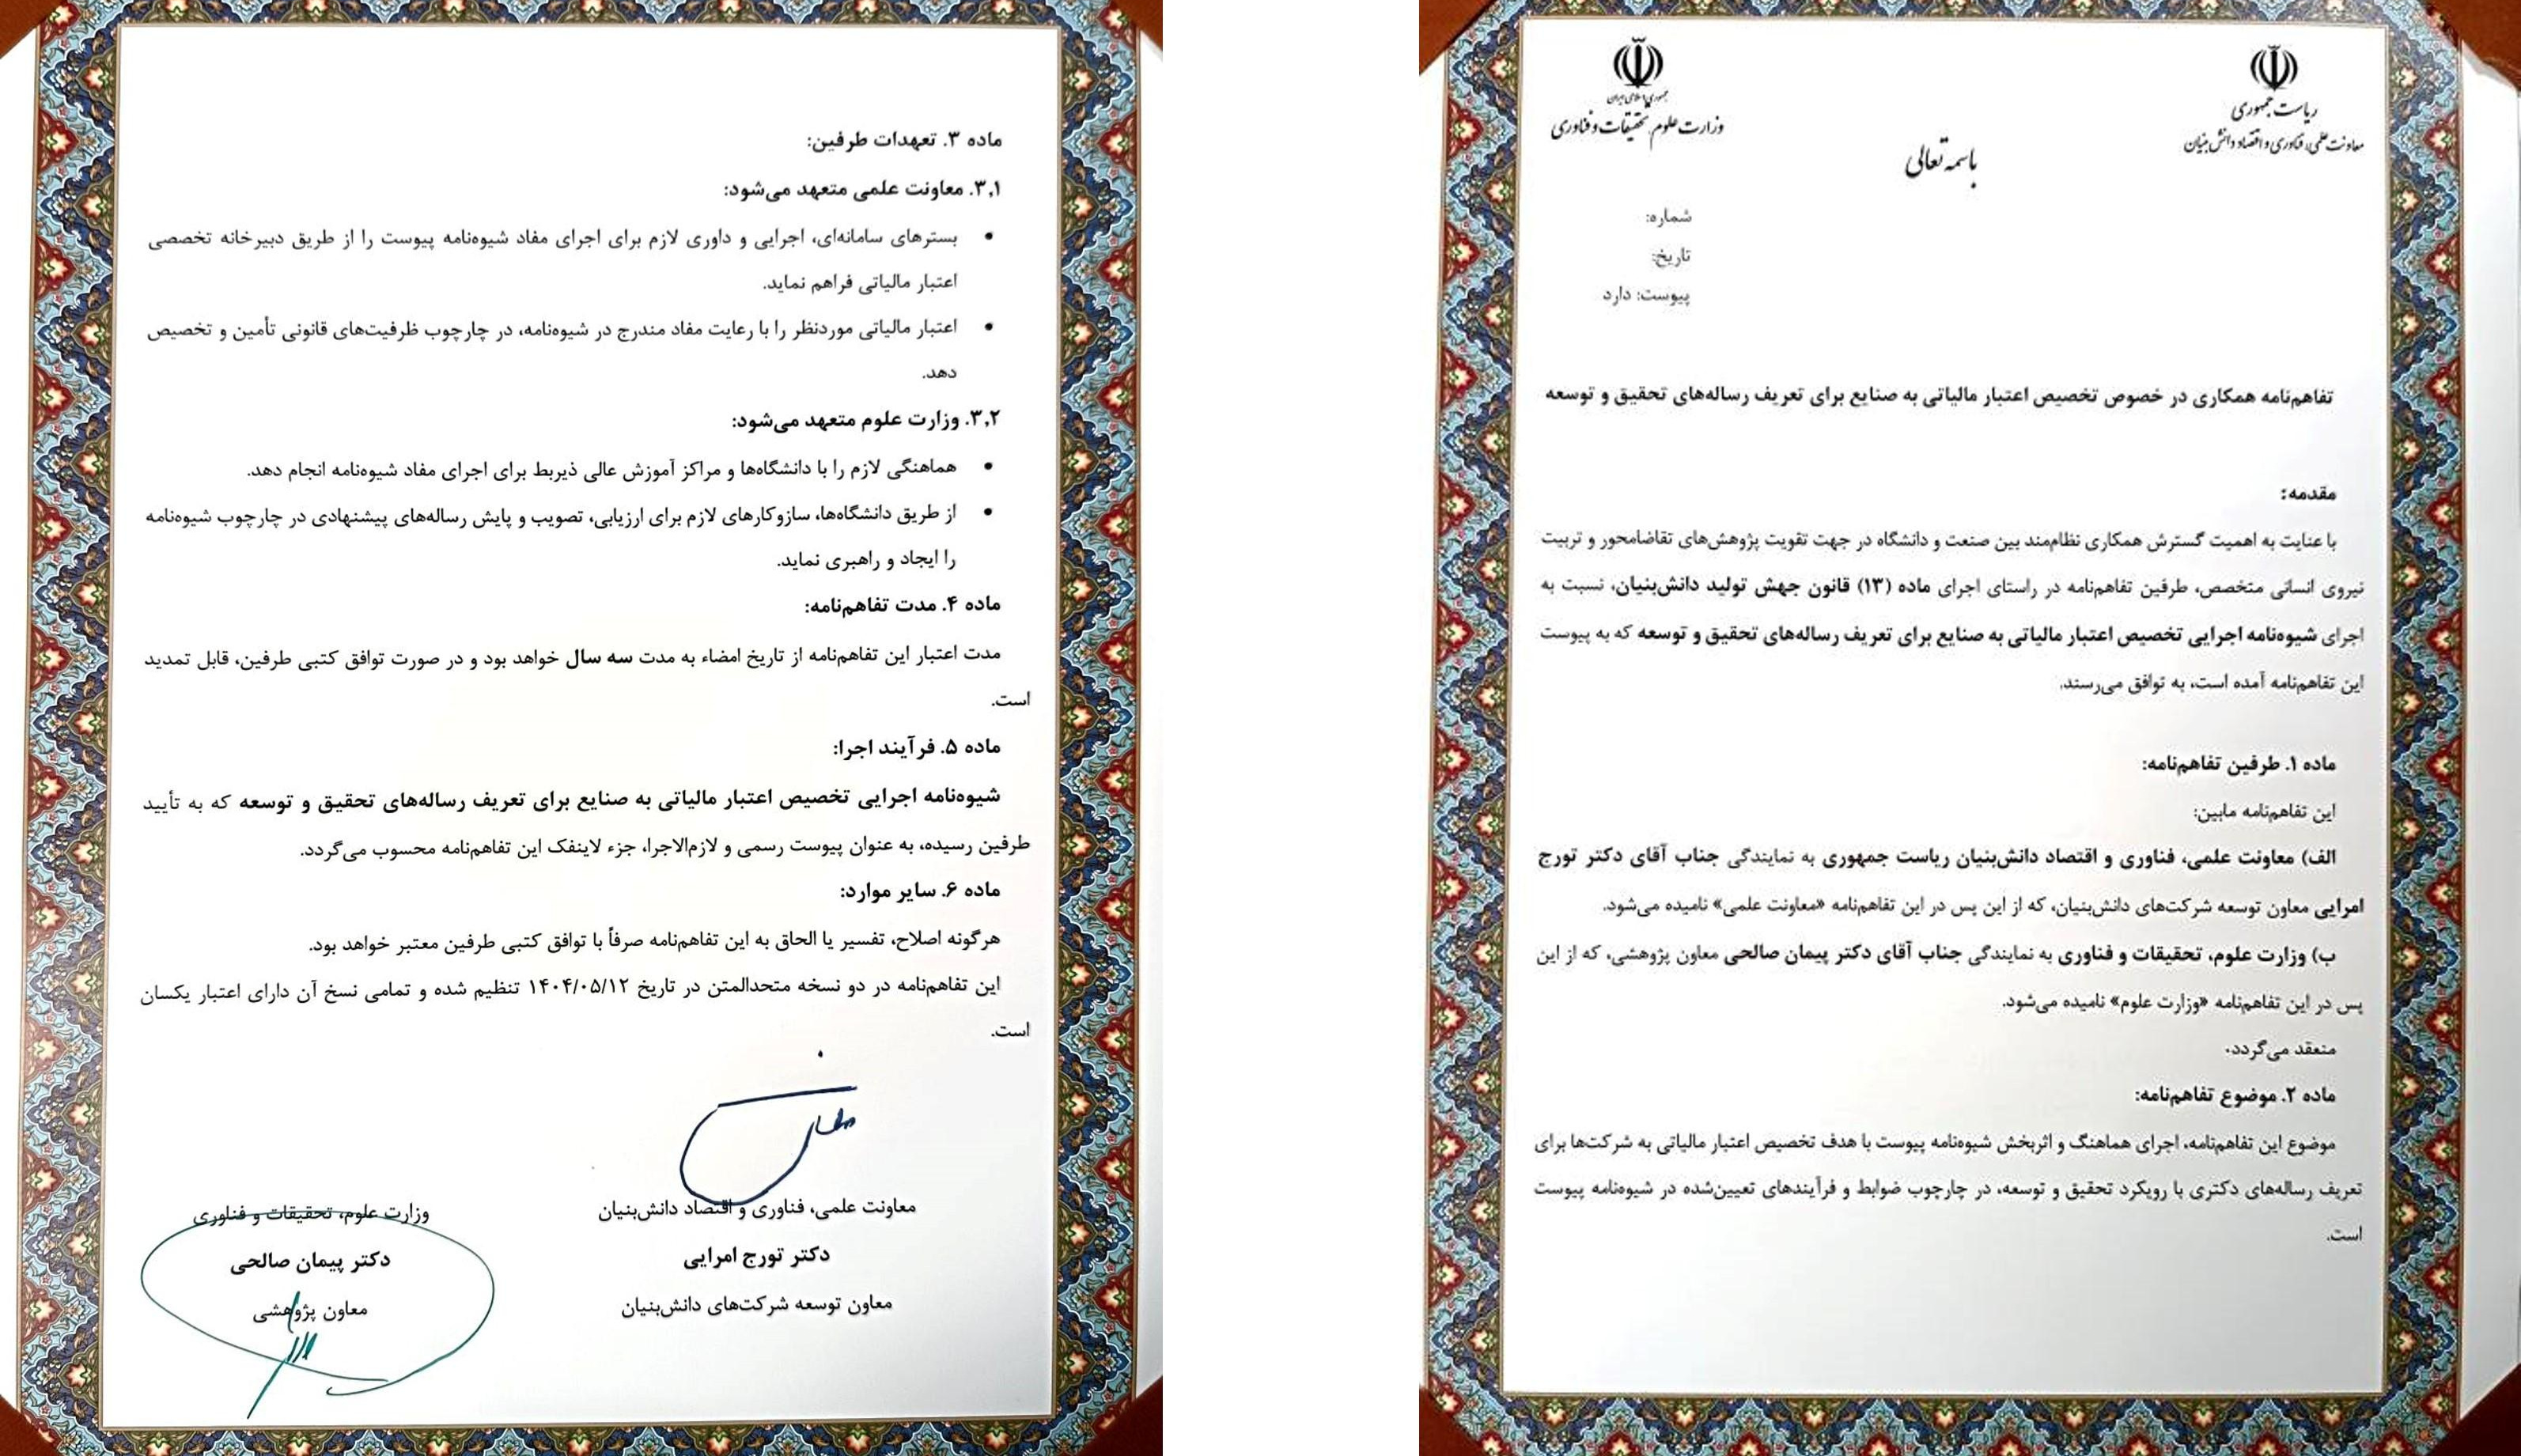 ریاست جمهوری
معاونت علمی، فناوری و اقتصاد دانش‌بنیان
جمهوری اسلامی ایران
وزارت علوم، تحقیقات و فناوری
باسمه تعالی
شماره:
تاریخ:
پیوست: دارد
تفاهم‌نامه همکاری در خصوص تخصیص اعتبار مالیاتی به صنایع برای تعریف رساله‌های تحقیق و توسعه
مقدمه:
با عنایت به اهمیت گسترش همکاری نظام‌مند بین صنعت و دانشگاه در جهت تقویت پژوهش‌های تقاضامحور و تربیت
نیروی انسانی متخصص، طرفین تفاهم‌نامه در راستای اجرای ماده (۱۳) قانون جهش تولید دانش‌بنیان، نسبت به
اجرای شیوه‌نامه اجرایی تخصیص اعتبار مالیاتی به صنایع برای تعریف رساله‌های تحقیق و توسعه که به پیوست
این تفاهم‌نامه آمده است، به توافق می‌رسند.
ماده ۱. طرفین تفاهم‌نامه:
این تفاهم‌نامه مابین:
الف) معاونت علمی، فناوری و اقتصاد دانش‌بنیان ریاست جمهوری به نمایندگی جناب آقای دکتر تورج
امرایی معاون توسعه شرکت‌های دانش‌بنیان، که از این پس در این تفاهم‌نامه «معاونت علمی» نامیده می‌شود.
ب) وزارت علوم، تحقیقات و فناوری به نمایندگی جناب آقای دکتر پیمان صالحی معاون پژوهشی، که از این
پس در این تفاهم‌نامه «وزارت علوم» نامیده می‌شود.
منعقد می‌گردد.
ماده ۲. موضوع تفاهم‌نامه:
موضوع این تفاهم‌نامه، اجرای هماهنگ و اثربخش شیوه‌نامه پیوست با هدف تخصیص اعتبار مالیاتی به شرکت‌ها برای
تعریف رساله‌های دکتری با رویکرد تحقیق و توسعه، در چارچوب ضوابط و فرآیندهای تعیین‌شده در شیوه‌نامه پیوست
است.
ماده ۳. تعهدات طرفین:
۳,۱. معاونت علمی متعهد می‌شود:
• بسترهای سامانه‌ای، اجرایی و داوری لازم برای اجرای مفاد شیوه‌نامه پیوست را از طریق دبیرخانه تخصصی
اعتبار مالیاتی فراهم نماید.
• اعتبار مالیاتی موردنظر را با رعایت مفاد مندرج در شیوه‌نامه، در چارچوب ظرفیت‌های قانونی تأمین و تخصیص
دهد.
۳,۲. وزارت علوم متعهد می‌شود:
• هماهنگی لازم را با دانشگاه‌ها و مراکز آموزش عالی ذیربط برای اجرای مفاد شیوه‌نامه انجام دهد.
• از طریق دانشگاه‌ها، سازوکارهای لازم برای ارزیابی، تصویب و پایش رساله‌های پیشنهادی در چارچوب شیوه‌نامه
را ایجاد و راهبری نماید.
ماده ۴. مدت تفاهم‌نامه:
مدت اعتبار این تفاهم‌نامه از تاریخ امضاء به مدت سه سال خواهد بود و در صورت توافق کتبی طرفین، قابل تمدید
است.
ماده ۵. فرآیند اجرا:
شیوه‌نامه اجرایی تخصیص اعتبار مالیاتی به صنایع برای تعریف رساله‌های تحقیق و توسعه که به تأیید
طرفین رسیده، به عنوان پیوست رسمی و لازم‌الاجرا، جزء لاینفک این تفاهم‌نامه محسوب می‌گردد.
ماده ۶. سایر موارد:
هرگونه اصلاح، تفسیر یا الحاق به این تفاهم‌نامه صرفاً با توافق کتبی طرفین معتبر خواهد بود.
این تفاهم‌نامه در دو نسخه متحدالمتن در تاریخ ۱۴۰۴/۰۵/۱۲ تنظیم شده و تمامی نسخ آن دارای اعتبار یکسان
است.
معاونت علمی، فناوری و اقتصاد دانش‌بنیان
دکتر تورج امرایی
معاون توسعه شرکت‌های دانش‌بنیان
وزارت علوم، تحقیقات و فناوری
دکتر پیمان صالحی
معاون پژوهشی